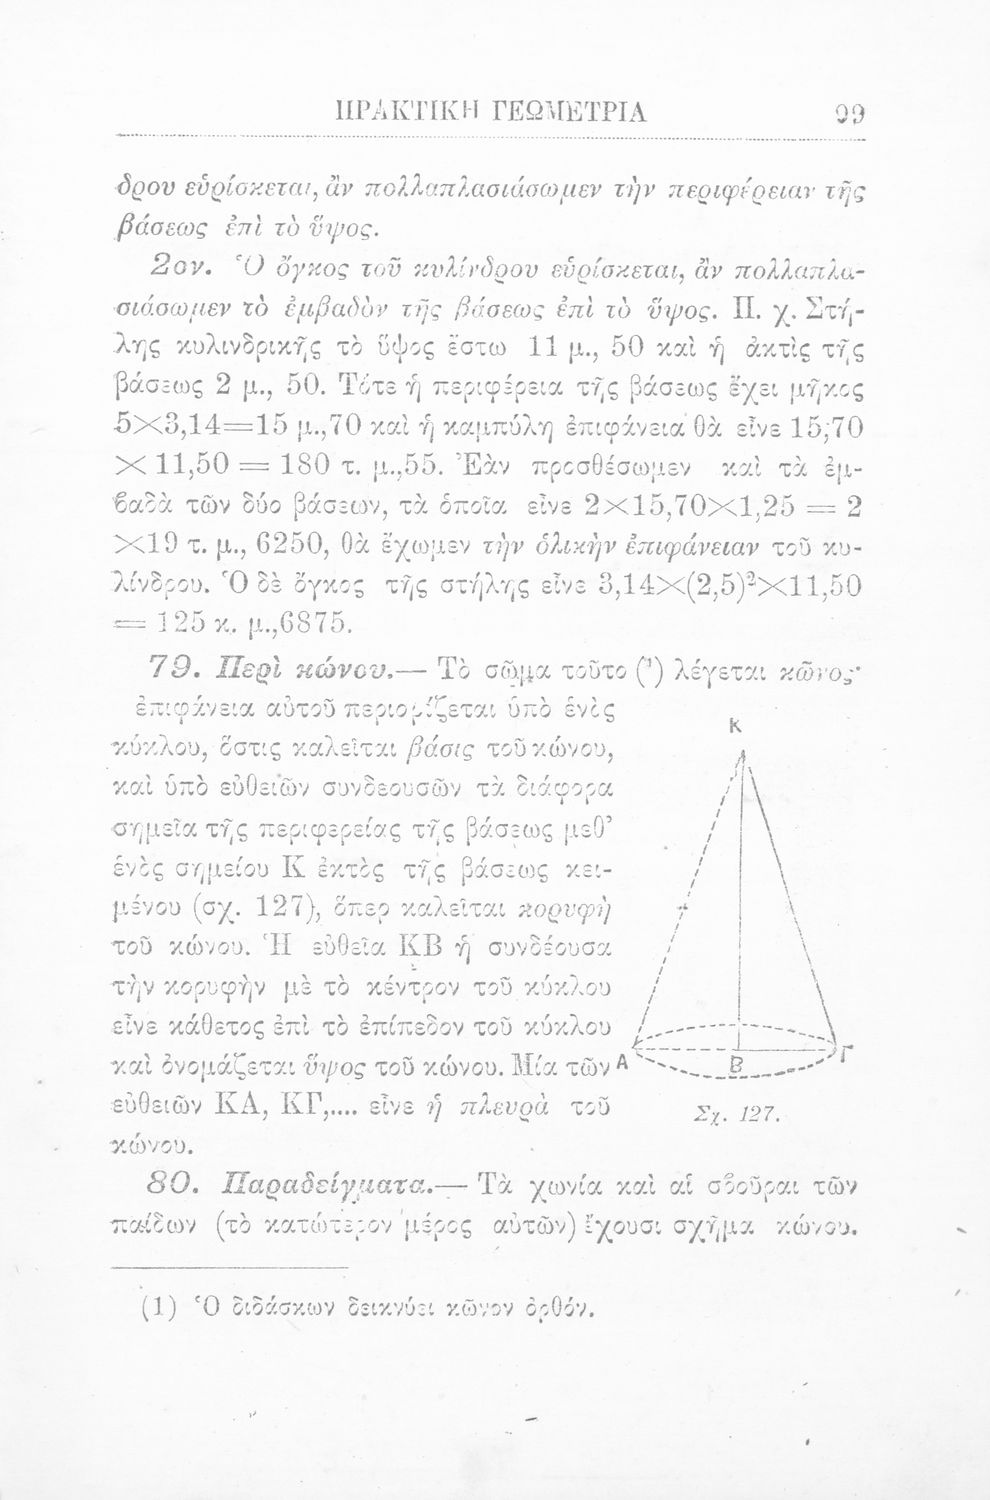 ΠΡΑΚΤΙΚΗ ΓΕΩΜΕΤΡΙΑ 99
δρου εὑρίσκεται, ἂν πολλαπλασιάσωμεν τὴν περιφέρειαν τῆς
βάσεως ἐπὶ τὸ ὕψος.
2ον. Ὁ ὄγκος τοῦ κυλίνδρου εὑρίσκεται, ἂν πολλαπλα-
σιάσωμεν τὸ ἐμβαδὸν τῆς βάσεως ἐπὶ τὸ ὕψος. Π. χ. Στή-
λης κυλινδρικῆς τὸ ὕψος ἔστω 11 μ., 50 καὶ ἡ ἀκτὶς τῆς
βάσεως 2 μ., 50. Τότε ἡ περιφέρεια τῆς βάσεως ἔχει μῆκος
5×3,14=15 μ.,70 καὶ ἡ καμπύλη ἐπιφάνεια θὰ εἶνε 15,70
×11,50 = 180 τ. μ.,55. Ἐὰν προσθέσωμεν καὶ τὰ ἐμ-
βαδὰ τῶν δύο βάσεων, τὰ ὁποῖα εἶνε 2×15,70×1,25 = 2
×19 τ. μ., 6250, θὰ ἔχωμεν τὴν ὁλικὴν ἐπιφάνειαν τοῦ κυ-
λίνδρου. Ὁ δὲ ὄγκος τῆς στήλης εἶνε 3,14×(2,5)²×11,50
= 125 κ. μ.,6875.
79. Περὶ κώνου.— Τὸ σῶμα τοῦτο (¹) λέγεται κῶνος·
ἐπιφάνεια αὐτοῦ περιορίζεται ὑπὸ ἑνὸς
κύκλου, ὅστις καλεῖται βάσις τοῦ κώνου,
καὶ ὑπὸ εὐθειῶν συνδεουσῶν τὰ διάφορα
σημεῖα τῆς περιφερείας τῆς βάσεως μεθ’
ἑνὸς σημείου Κ ἐκτὸς τῆς βάσεως κει-
μένου (σχ. 127), ὅπερ καλεῖται κορυφὴ
τοῦ κώνου. Ἡ εὐθεῖα ΚΒ ἡ συνδέουσα
τὴν κορυφὴν μὲ τὸ κέντρον τοῦ κύκλου
εἶνε κάθετος ἐπὶ τὸ ἐπίπεδον τοῦ κύκλου
καὶ ὀνομάζεται ὕψος τοῦ κώνου. Μία τῶν
εὐθειῶν ΚΑ, ΚΓ,.... εἶνε ἡ πλευρὰ τοῦ
κώνου.
Κ
Α
Β
Γ
Σχ. 127.
80. Παραδείγματα.— Τὰ χωνία καὶ αἱ σβοῦραι τῶν
παίδων (τὸ κατώτερον μέρος αὐτῶν) ἔχουσι σχῆμα κώνου.
(1) Ὁ διδάσκων δεικνύει κῶνον ὀρθόν.